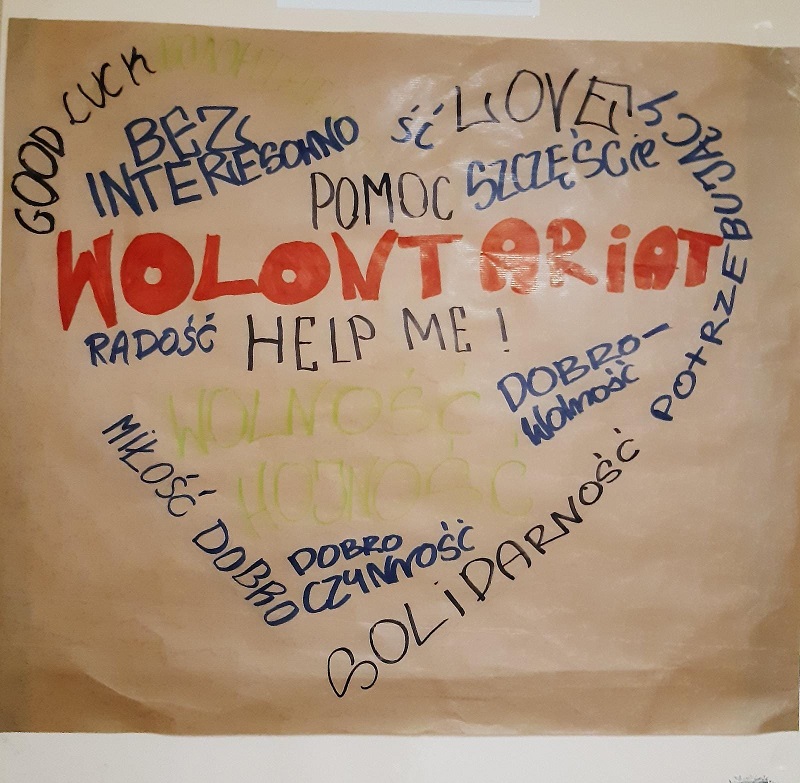 GOOD LUCK
BEZ
INTERESOWNO ŚĆ
LOVE
POMOC
SZCZĘŚCIE
POTRZEBUJĄCY
WOLONTARIAT
RADOŚĆ
HELP ME!
DOBRO-
WOLNOŚĆ
WOLNOŚĆ
HOJNOŚĆ
MIŁOŚĆ DOBRO
DOBRO
CZYNNOŚĆ
SOLIDARNOŚĆ